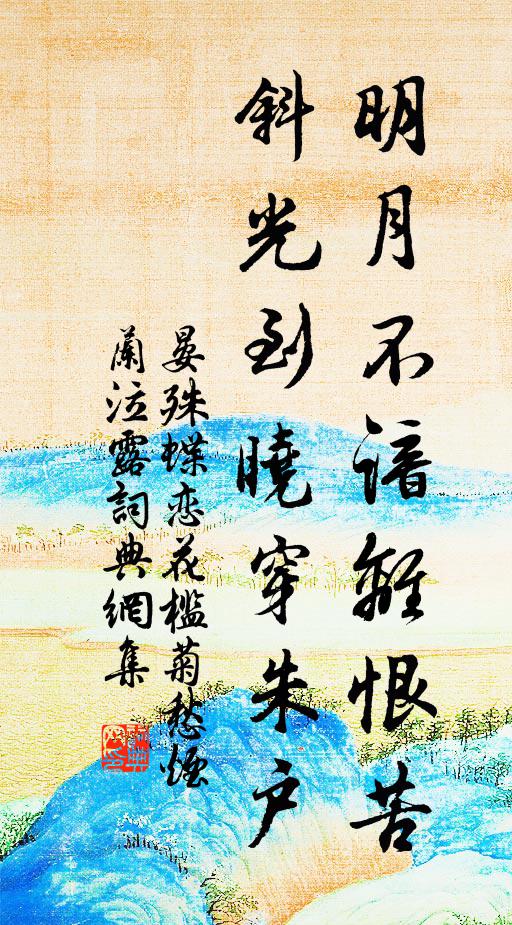 明月不諳離恨苦
斜光到曉穿朱户
晏殊蝶恋花檻菊愁煙
蘭泣露詞典網集